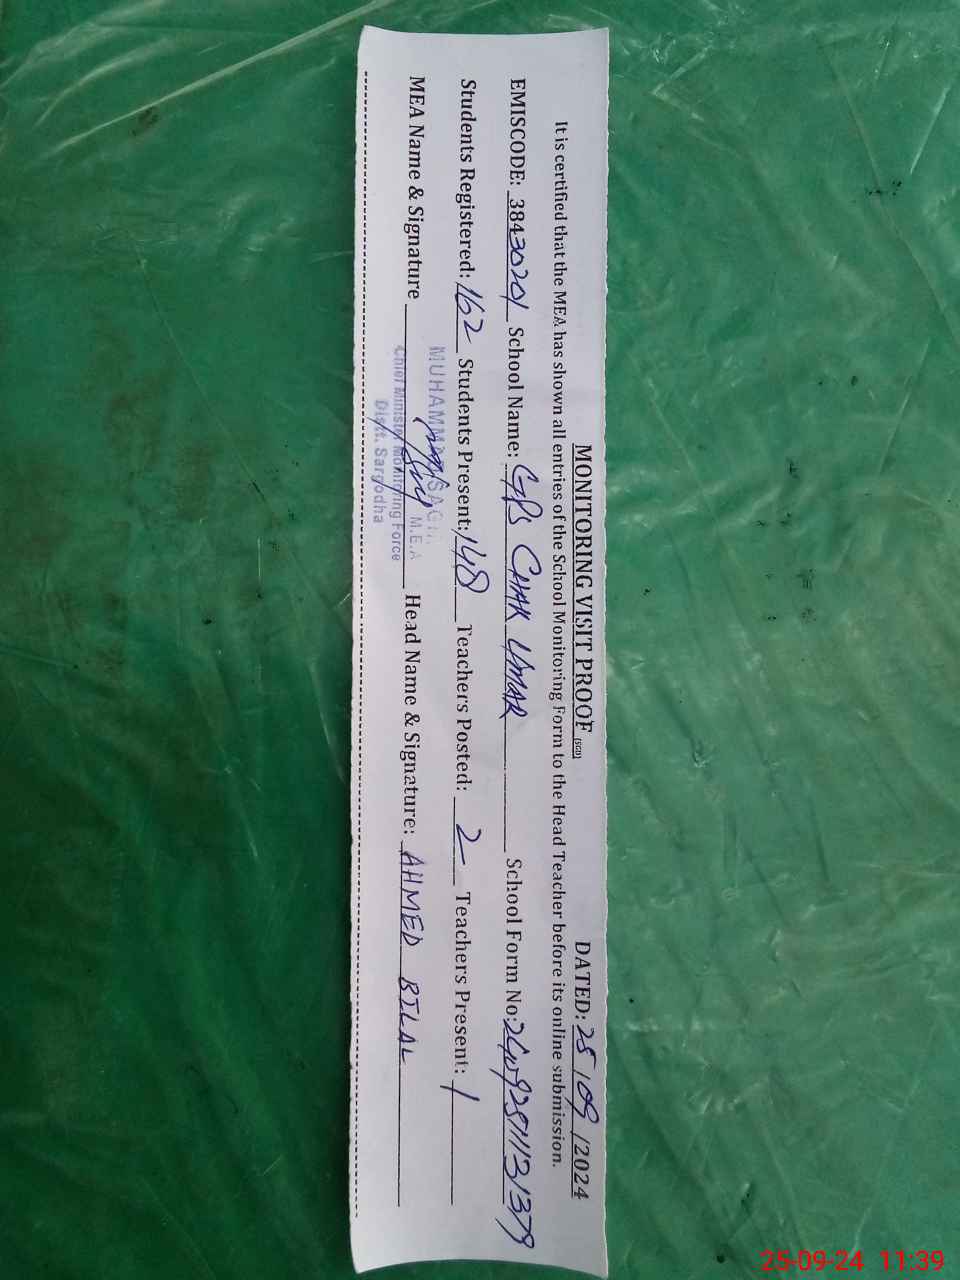 MONITORING VISIT PROOF (SGD) DATED: 25/09/2024
It is certified that the MEA has shown all entries of the School Monitoring Form to the Head Teacher before its online submission.
EMISCODE: 38430201 School Name: GPS CHAK UMAR School Form No:
Students Registered: 162 Students Present: 148 Teachers Posted: 2 Teachers Present: 1
MEA Name & Signature Head Name & Signature: AHMED BILAL
M.E.A
Chief Minister Monitoring Force
Distt. Sargodha
25-09-24 11:39